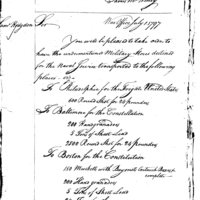 James McHenry
Sam Hodgdon
Sir
War Office July 1797
You will be pleased to take order to
have the undermentioned Military Stores destined
for the Naval Service transported to the following
places — viz
To Philadelphia for the Frigate United States
200 Round Shot for 24 pounders
To Baltimore for the Constellation
200 Hand grenades
5 Tons of Sheet Lead
2500 Round Shot for 24 pounders
To Boston for the Constitution
150 Muskets with Bayonets
complete
200 Hand grenades
5 Tons of Sheet Lead